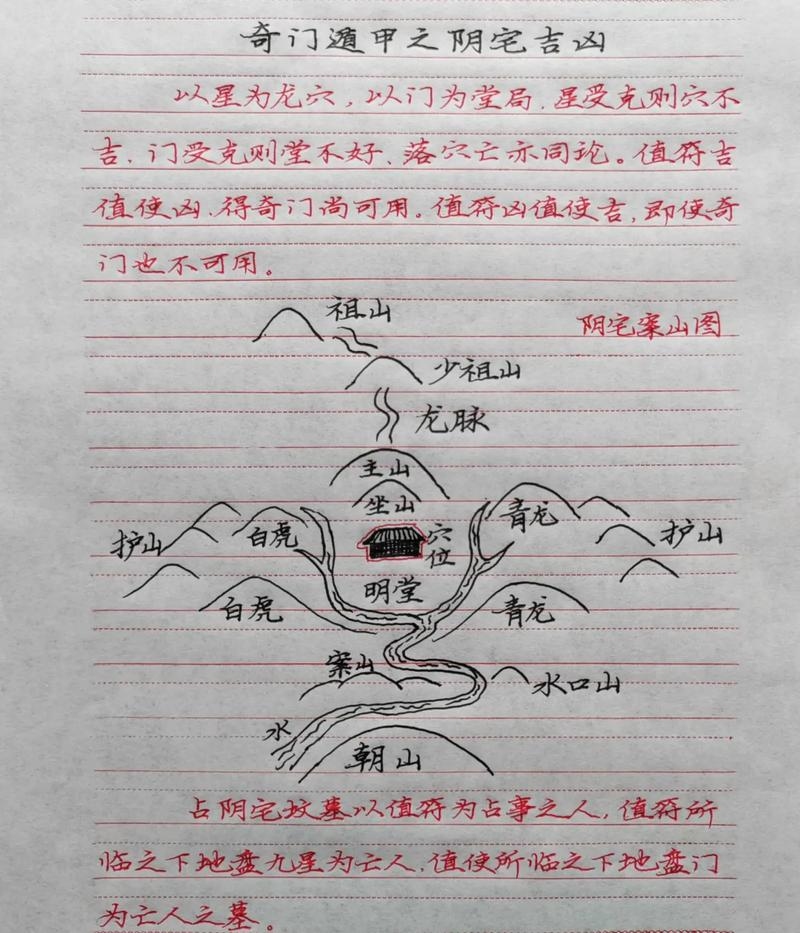 奇门遁甲之阴宅吉凶
以星为龙穴，以门为堂局，星受克则穴不
吉，门受克则堂不好、落穴亡亦同论。值符吉
值使凶，得奇门尚可用。值符凶值使吉，即使奇
门也不可用。
祖山
阴宅案山图
少祖山
龙脉
主山
坐山
护山
白虎
穴位
青龙
护山
明堂
白虎
青龙
案山
水口山
水
朝山
占阴宅坟墓以值符为占事之人，值符所
临之下地盘九星为亡人，值使所临之下地盘门
为亡人之墓。